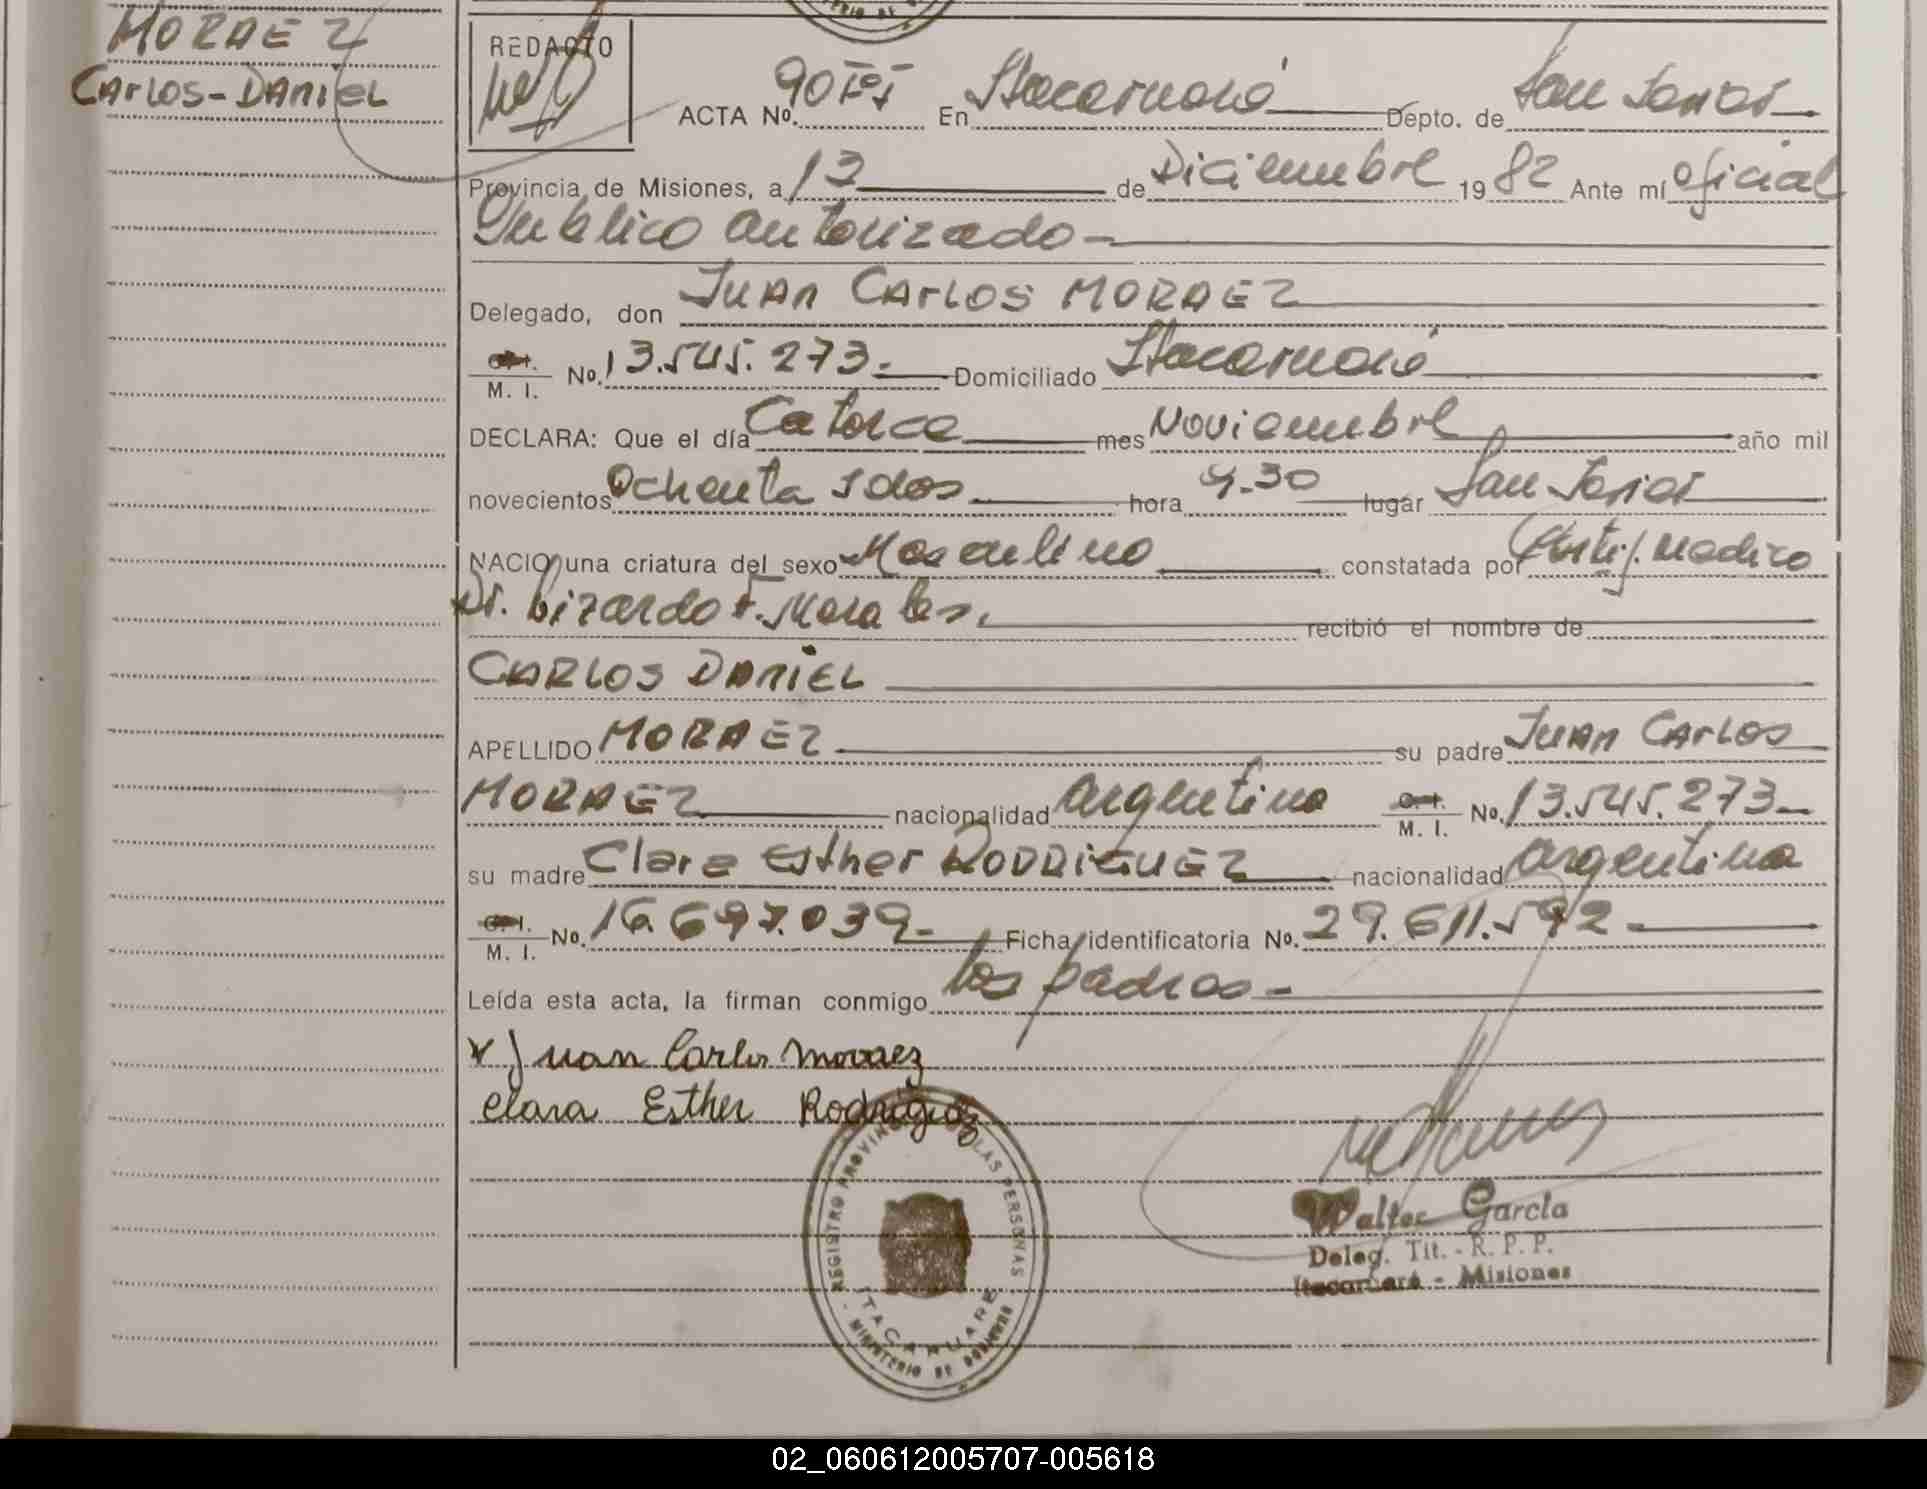 MORAEZ
CARLOS-DANIEL
REDACTO
ACTA No. 90 En Itacaruaré Depto. de San Javier
Provincia de Misiones, a 13 de Diciembre 1982 Ante mí oficial
Publico autorizado-
Delegado, don JUAN CARLOS MORAEZ
C. I. M. I. No. 13.545.273.- Domiciliado Itacaruaré
DECLARA: Que el día Catorce mes Noviembre año mil
novecientos Ochenta y dos hora 4.30 lugar San Javier
NACIO una criatura del sexo Masculino constatada por Certif. medico
Dr. Lizardo F. Morales. recibió el nombre de
CARLOS DANIEL
APELLIDO MORAEZ su padre JUAN CARLOS
MORAEZ nacionalidad argentino C. I. M. I. No. 13.545.273-
su madre Clara Esther RODRIGUEZ nacionalidad argentina
C. I. M. I. No. 16.697.039- Ficha identificatoria No. 29.611.592-
Leída esta acta, la firman conmigo los padres-
x Juan Carlos Moraez
Clara Esther Rodriguez
REGISTRO PROVINCIAL DE LAS PERSONAS
ITACARUARE
- MINISTERIO DE GOBIERNO
Walter García
Deleg. Tit. - R. P. P.
Itacaruaré - Misiones
02_060612005707-005618